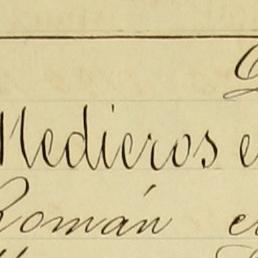 Medieros e
Román e